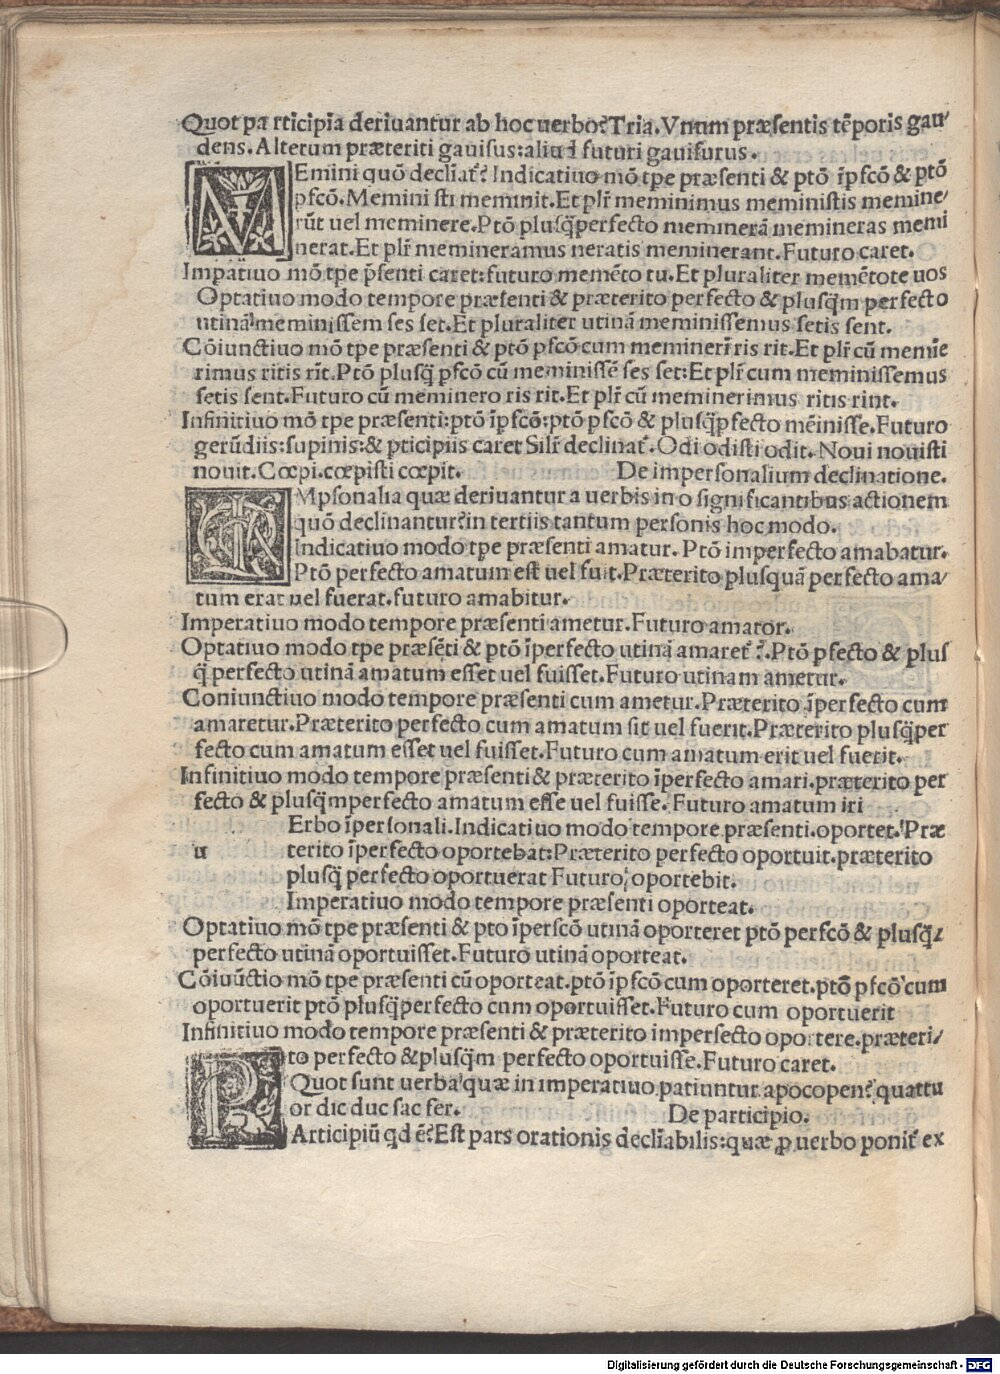 Quot participia deriuantur ab hoc uerbo? Tria. Vnum præsentis tēporis gau/
dens. Alterum præteriti gauisus: aliud futuri gauisurus.
MEmini quō decliat᷑? Indicatiuo mō tpe præsenti & ptō īpfcō & ptō
pfcō. Memini sti meminit. Et plr̄ meminimus meministis memine/
rūt uel meminere. Ptō plusq̄perfecto meminerā memineras memi
nerat. Et plr̄ memineramus neratis meminerant. Futuro caret.
Impatiuo mō tpe p̄senti caret: futuro memēto tu. Et pluraliter memētote uos
Optatiuo modo tempore præsenti & præterito perfecto & plusq̄m perfecto
utinā meminissem ses set. Et pluraliter utinā meminissemus setis sent.
Cōiunctiuo mō tpe præsenti & ptō pfcō cum meminerī ris rit. Et plr̄ cū memīe
rimus ritis rīt. Ptō plusq̄ pfcō cū meminissē ses set: Et plr̄ cum meminissemus
setis sent. Futuro cū meminero ris rit. Et plr̄ cū meminerimus ritis rint.
Infinitiuo mō tpe præsenti: ptō īpfcō: ptō pfcō & plusq̄pfecto mēinisse. Futuro
gerūdiis: supinis: & pticipiis caret Silr̄ declinat᷑. Odi odisti odit. Noui nouisti
nouit. Cœpi. cœpisti cœpit. De impersonalium declinatione.
IMpsonalia quæ deriuantur a uerbis in o significantibus actionem
quō declinantur? in tertiis tantum personis hoc modo.
Indicatiuo modo tpe præsenti amatur. Ptō imperfecto amabatur.
Ptō perfecto amatum est uel fuit. Præterito plusquā perfecto ama/
tum erat uel fuerat. futuro amabitur.
Imperatiuo modo tempore præsenti ametur. Futuro amator.
Optatiuo modo tpe præsēti & ptō īperfecto utinā amaret᷑ ?. Ptō pfecto & plus
q̄ perfecto utinā amatum esset uel fuisset. Futuro utinam ametur.
Coniunctiuo modo tempore præsenti cum ametur. Præterito īperfecto cum
amaretur. Præterito perfecto cum amatum sit uel fuerit. Præterito plusq̄per
fecto cum amatum esset uel fuisset. Futuro cum amatum erit uel fuerit.
Infinitiuo modo tempore præsenti & præterito īperfecto amari. præterito per
fecto & plusq̄mperfecto amatum esse uel fuisse. Futuro amatum iri
Erbo īpersonali. Indicatiuo modo tempore præsenti. oportet. Præ
u terito īperfecto oportebat: Præterito perfecto oportuit. præterito
plusq̄ perfecto oportuerat Futuro, oportebit.
Imperatiuo modo tempore præsenti oporteat.
Optatiuo mō tpe præsenti & pto īperfcō utinā oporteret ptō perfcō & plusq̄/
perfecto utinā oportuisset. Futuro utinā oporteat.
Cōiūctio mō tpe præsenti cū oporteat. ptō īpfcō cum oporteret. ptō pfcō cum
oportuerit ptō plusq̄perfecto cum oportuisset. Futuro cum oportuerit
Infinitiuo modo tempore præsenti & præterito imperfecto oportere. præteri/
to perfecto & plusq̄m perfecto oportuisse. Futuro caret.
Quot sunt uerba quæ in imperatiuo patiuntur apocopen? quattu
or dic duc fac fer. De participio.
PArticipiū qd ē? Est pars orationis declīabilis: quæ ꝓ uerbo ponit᷑ ex
Digitalisierung gefördert durch die Deutsche Forschungsgemeinschaft - DFG